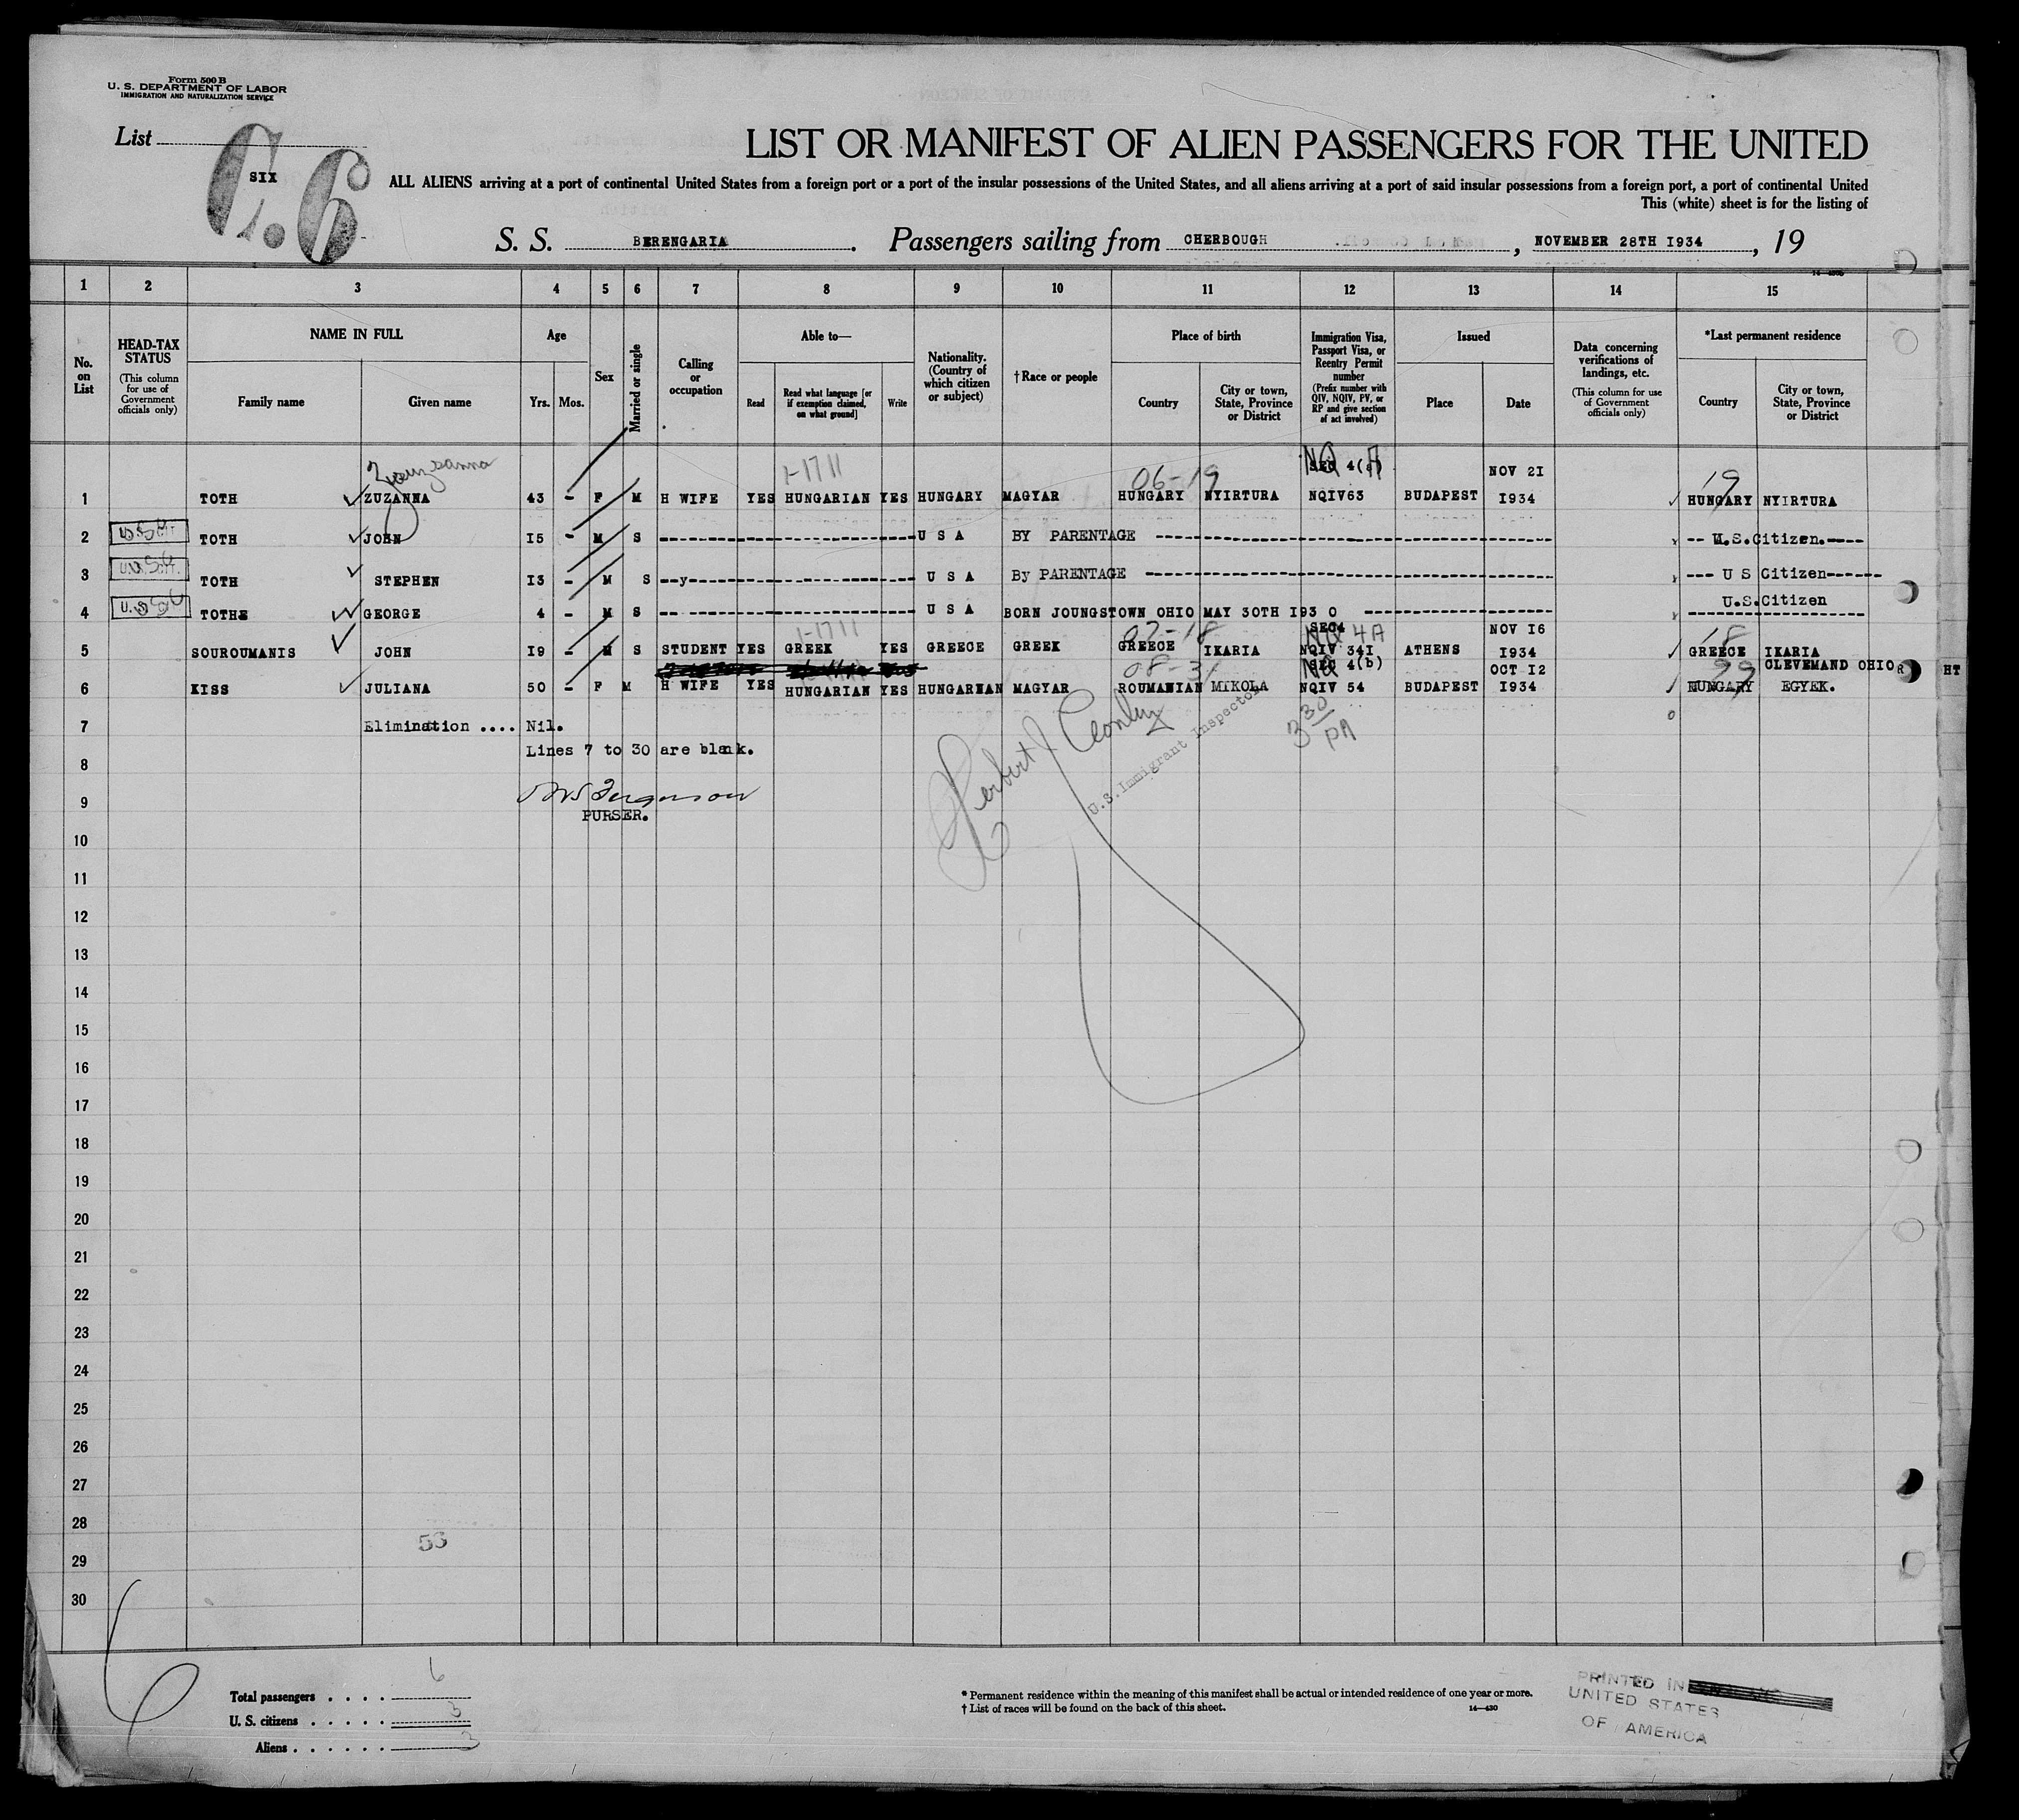 Form 500 B
U. S. DEPARTMENT OF LABOR
IMMIGRATION AND NATURALIZATION SERVICE
List
SIX
C. 6
LIST OR MANIFEST OF ALIEN PASSENGERS FOR THE UNITED
ALL ALIENS arriving at a port of continental United States from a foreign port or a port of the insular possessions of the United States, and all aliens arriving at a port of said insular possessions from a foreign port, a port of continental United
This (white) sheet is for the listing of
S. S. BERENGARIA. Passengers sailing from CHERBOUGH, NOVEMBER 28TH I934, 19
1 2 3 4 5 6 7 8 9 10 11 12 13 14 15
No. on List
HEAD-TAX STATUS (This column for use of Government officials only)
NAME IN FULL
Family name Given name
Age
Yrs. Mos.
Sex
Married or single
Calling or occupation
Able to—
Read Read what language [or if exemption claimed, on what ground] Write
Nationality. (Country of which citizen or subject)
† Race or people
Place of birth
Country City or town, State, Province or District
Immigration Visa, Passport Visa, or Reentry Permit number (Prefix number with QIV, NQIV, PV, or RP and give section of act involved)
Issued
Place Date
Data concerning verifications of landings, etc. (This column for use of Government officials only)
*Last permanent residence
Country City or town, State, Province or District
1-1711 06-19 NQ SEC 4(a) NOV 2I 19
1 TOTH ZUZANNA 43 - F M H WIFE YES HUNGARIAN YES HUNGARY MAGYAR HUNGARY NYIRTURA NQIV63 BUDAPEST I934 HUNGARY NYIRTURA
2 TOTH JOHN I5 - M S U S A BY PARENTAGE -- U.S.Citizen.----
3 TOTH STEPHEN I3 - M S --y-- U S A By PARENTAGE --- U S Citizen------
4 TOTH GEORGE 4 - M S U S A BORN JOUNGSTOWN OHIO MAY 30TH I93 0 U.S.Citizen
1-1711 07-18 SEC4 NQ 4A NOV I6 18
5 SOUROUMANIS JOHN I9 - M S STUDENT YES GREEK YES GREECE GREEK GREECE IKARIA NQIV 34I ATHENS I934 GREECE IKARIA
08-31 NQ SEC 4(b) OCT I2 CLEVEMAND OHIO
HT
6 KISS JULIANA 50 - F M H WIFE YES HUNGARIAN YES HUNGARIAN MAGYAR ROUMANIAN MIKOLA NQIV 54 BUDAPEST I934 HUNGARY EGYEK.
7 Elimination .... Nil.
Lines 7 to 30 are blank.
3 30 PA
8
U.S. Immigrant Inspector
9 Ferguson
PURSER.
10
11
12
13
14
15
16
17
18
19
20
21
22
23
24
25
26
27
28
53
29
30
Total passengers . . . . 6
U. S. citizens . . . . . 3
Aliens . . . . . . 3
* Permanent residence within the meaning of this manifest shall be actual or intended residence of one year or more.
† List of races will be found on the back of this sheet. 14—430
PRINTED IN
UNITED STATES
OF AMERICA